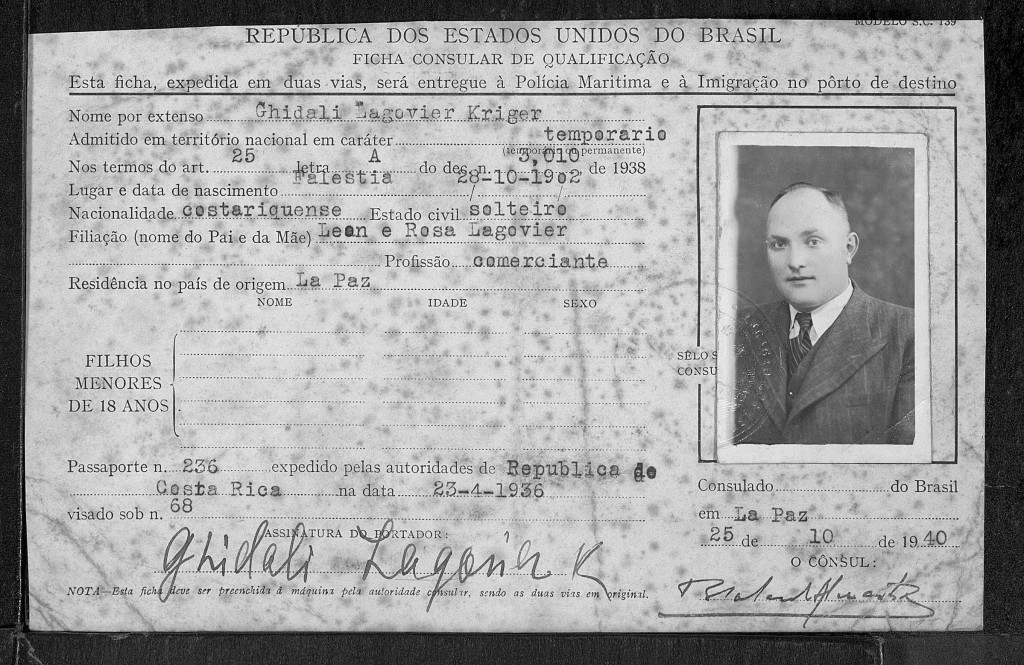 MODELO S.C. 139
REPÚBLICA DOS ESTADOS UNIDOS DO BRASIL
FICHA CONSULAR DE QUALIFICAÇÃO
Esta ficha, expedida em duas vias, será entregue à Polícia Maritima e à Imigração no pôrto de destino
Nome por extenso Ghidali Lagovier Kriger
Admitido em território nacional em caráter temporario
(temporário ou permanente)
Nos termos do art. 25 letra A do dec. n. 3,010 de 1938
Lugar e data de nascimento Palestia 28-10-1902
Nacionalidade costariquense Estado civil solteiro
Filiação (nome do Pai e da Mãe) Leon e Rosa Lagovier
Profissão comerciante
Residência no país de origem La Paz
NOME IDADE SEXO
FILHOS
MENORES
DE 18 ANOS
SÊLO S
CONSU
Passaporte n. 236 expedido pelas autoridades de Republica de
Costa Rica na data 23-4-1936
visado sob n. 68
ASSINATURA DO PORTADOR:
Ghidali Lagovier K
NOTA—Esta ficha deve ser preenchida à máquina pela autoridade consular, sendo as duas vias em original.
Consulado do Brasil
em La Paz
25 de 10 de 1940
O CÔNSUL: